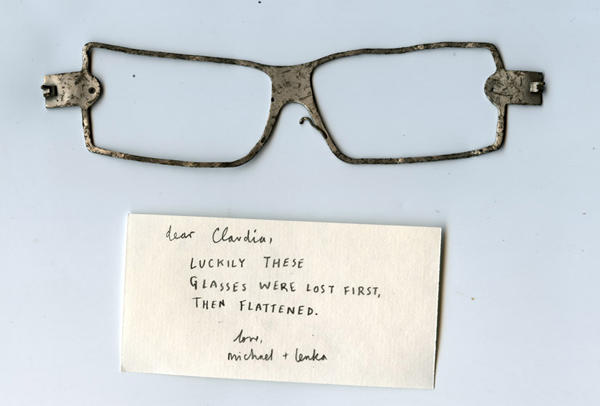 dear Claudia,
LUCKILY THESE
GLASSES WERE LOST FIRST,
THEN FLATTENED.
love,
michael + lenka